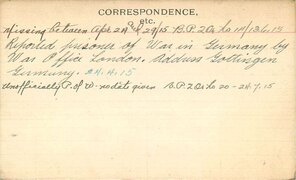 CORRESPONDENCE.
etc.
Missing between Apr 24 & 29/15 B.P.2Co. Lo 1
Reported prisoner of War in Germany by
War Office London. Address Gottingen
Germany. 24.4.15
Unofficially P. of W. no date given B.P.2Co. Lo 20 - 24.7.15